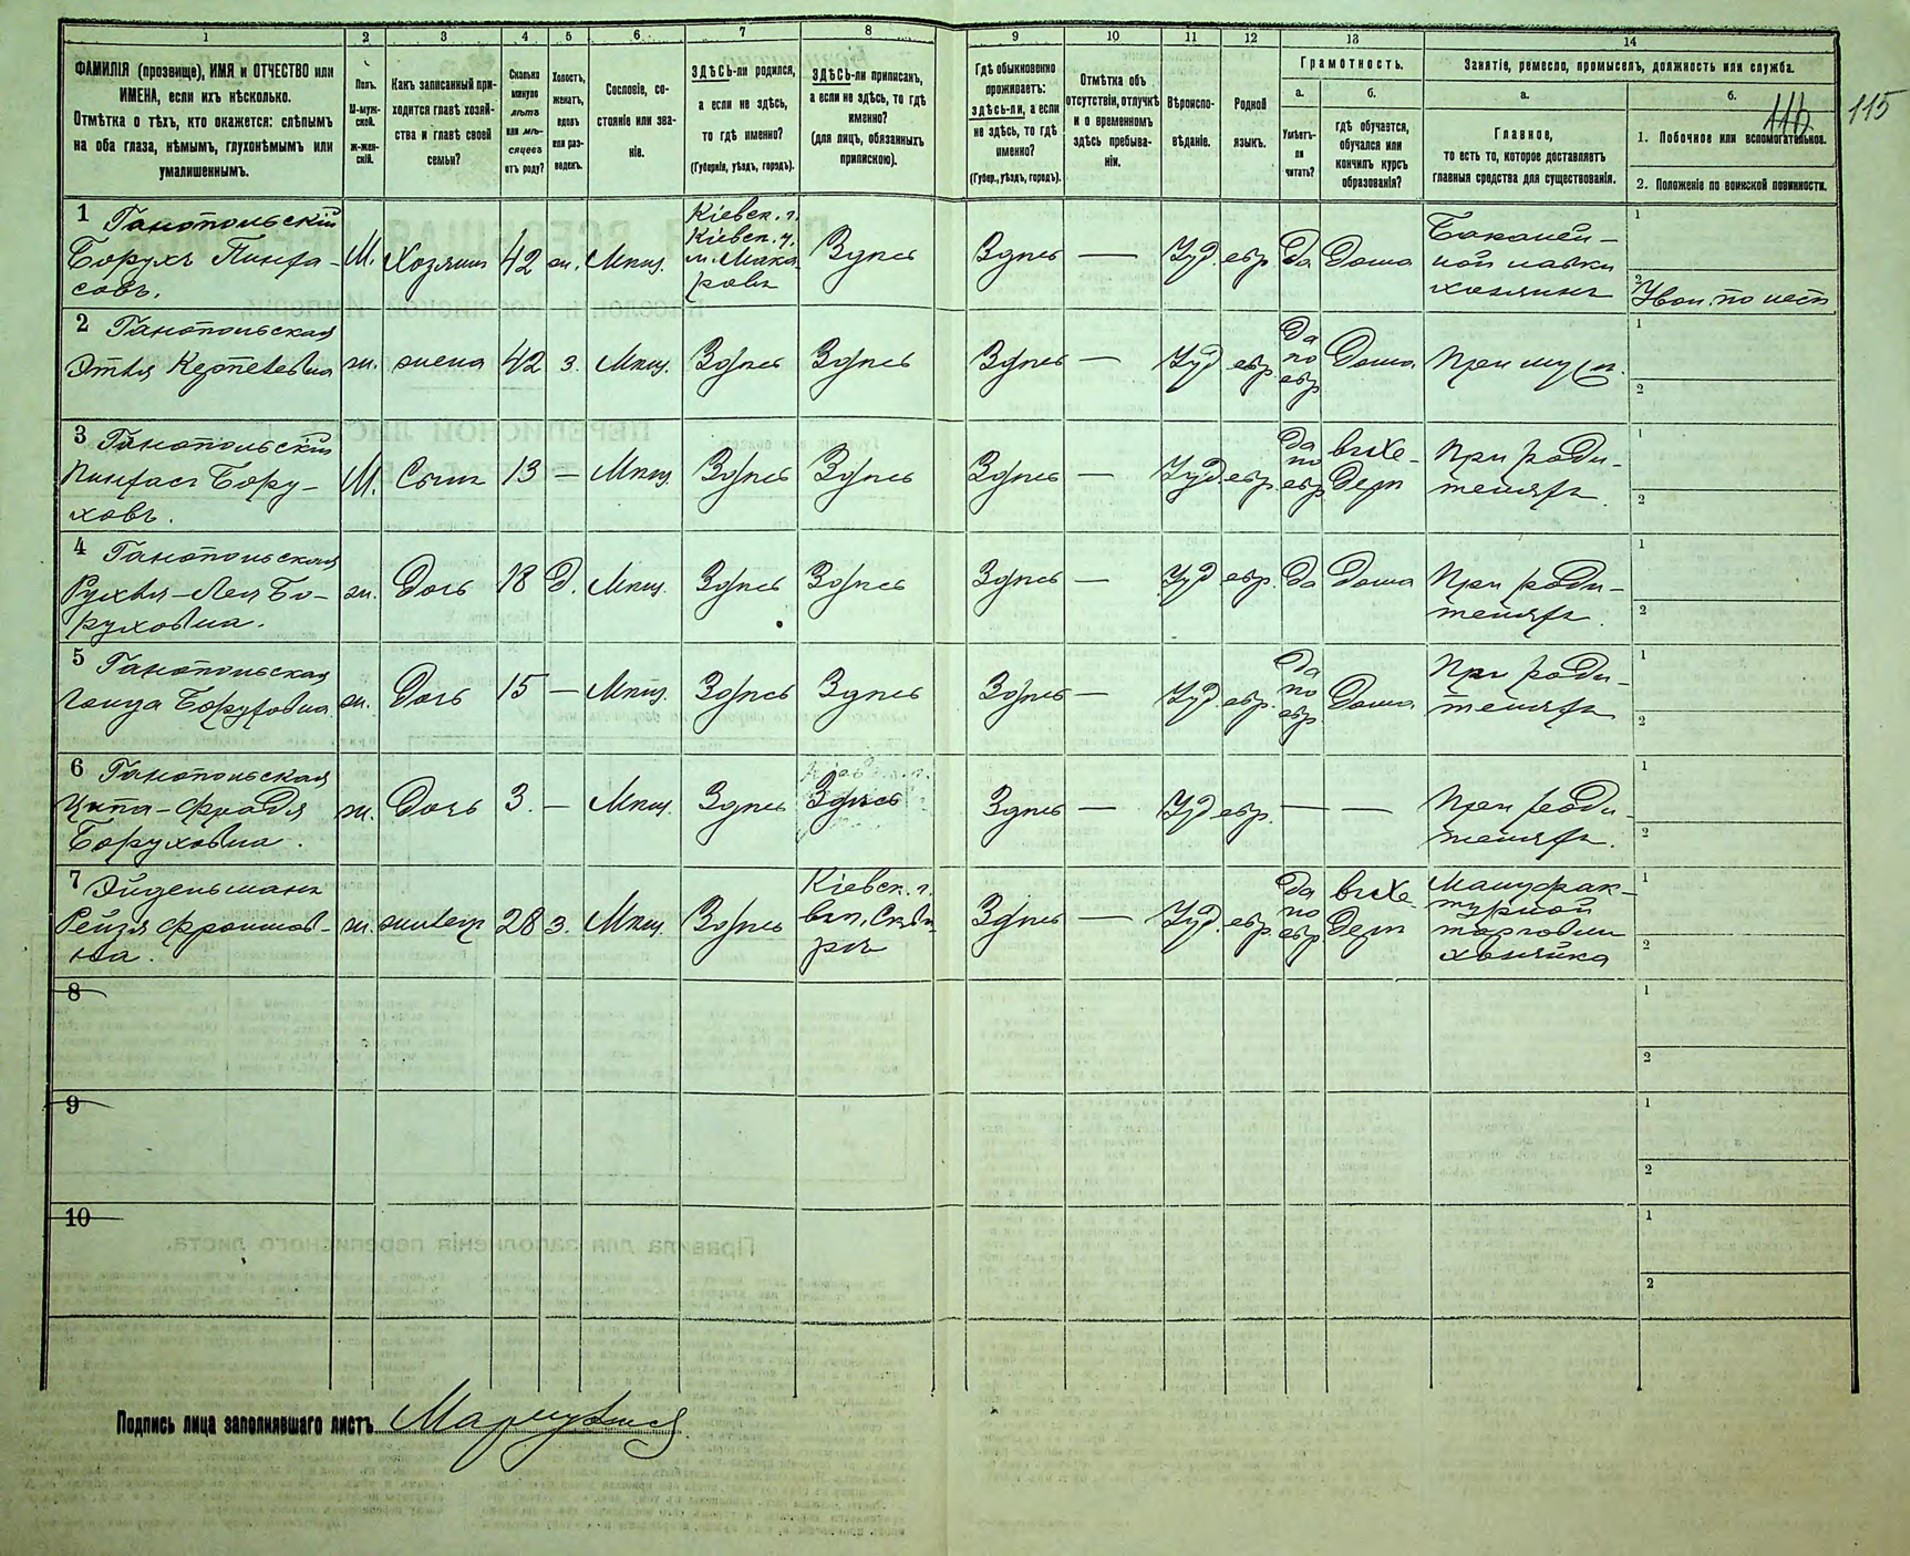 1 2 3 4 5 6 7 8 9 10 11 12 13 14
ФАМИЛІЯ (прозвище), ИМЯ и ОТЧЕСТВО или
ИМЕНА, если ихъ нѣсколько.
Отмѣтка о тѣхъ, кто окажется: слѣпымъ
на оба глаза, нѣмымъ, глухонѣмымъ или
умалишеннымъ.
Полъ.
М-муж-
ской.
Ж-жен-
скій.
Какъ записанный при-
ходится главѣ хозяй-
ства и главѣ своей
семьи?
Сколько
минуло
лѣтъ
или мѣ-
сяцевъ
отъ роду?
Холостъ,
женатъ,
вдовъ
или раз-
веденъ.
Сословіе, со-
стояніе или зва-
ніе.
ЗДѢСЬ-ли родился,
а если не здѣсь,
то гдѣ именно?
(Губернія, уѣздъ, городъ).
ЗДѢСЬ-ли приписанъ,
а если не здѣсь, то гдѣ
именно?
(для лицъ, обязанныхъ
припискою).
Гдѣ обыкновенно
проживаетъ:
здѣсь-ли, а если
не здѣсь, то гдѣ
именно?
(Губер., уѣздъ, городъ).
Отмѣтка объ
отсутствіи, отлучкѣ
и о временномъ
здѣсь пребыва-
ніи.
Вѣроиспо-
вѣданіе.
Родной
языкъ.
Грамотность.
а.
Умѣетъ-
ли
читать?
б.
гдѣ обучается,
обучался или
кончилъ курсъ
образованія?
Занятіе, ремесло, промыселъ, должность или служба.
а.
Главное,
то есть то, которое доставляетъ
главныя средства для существованія.
б.
1. Побочное или вспомогательное.
2. Положеніе по воинской повинности.
115
1 Ганопольскій
Борухъ Пинха-
совъ.
М. Хозяинъ 42 ж. Мѣщ.
Кіевск. г.
Кіевск. у.
м. Мака
ровъ
Здѣсь Здѣсь — Іуд. евр. Да Дома
Бакалей-
ной лавки
хозяинъ
1
2
2 Ганопольская
ж. жена 42 з. Мѣщ. Здѣсь Здѣсь Здѣсь — Іуд евр.
Да
по
евр
Дома При муж.
1
2
3 Ганопольскій
Пинхасъ Бору-
ховъ.
М. Сынъ 13 — Мѣщ. Здѣсь Здѣсь Здѣсь — Іуд. евр.
да
по
евр
въ хе-
дерѣ
При роди-
теляхъ.
1
2
4 Ганопольская
Рухля-Лея Бо-
руховна.
ж. Дочь 18 Д. Мѣщ. Здѣсь Здѣсь Здѣсь — Іуд евр. Да Дома
При роди-
теляхъ.
1
2
5 Ганопольская
Боруховна ж. Дочь 15 — Мѣщ. Здѣсь Здѣсь Здѣсь — Іуд. евр.
Да
по
евр.
Дома
При роди-
теляхъ
1
2
6 Ганопольская
Ципа-Фрадя
Боруховна.
ж. Дочь 3. — Мѣщ. Здѣсь Здѣсь Здѣсь — Іуд евр. — —
При роди-
теляхъ.
1
2
7 Эйдельманъ
Рейзя Фроимов-
на.
ж. 28 з. Мѣщ. Здѣсь
Кіевск. г.
Здѣсь — Іуд. евр.
Да
по
евр
въ хе-
дерѣ
Мануфак-
турной
торговли
хозяйка
1
2
8
1
2
9
1
2
10
1
2
Подпись лица заполнявшаго листъ